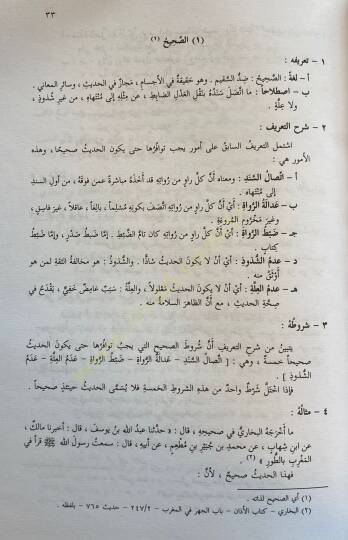 ٣٣
(١) الصَّحِيحُ (١)
١ - تعريفه :
أ - لغةً : الصَّحِيحُ : ضِدُّ السَّقيم . وهو حَقيقةٌ في الأجسامِ ، مَجازٌ في الحديثِ ، وسائرِ المعاني .
ب - اصطلاحاً : ما اتَّصَلَ سَنَدُهُ بنَقْلِ العَدْلِ الضابِطِ ، عن مِثْلِهِ إلى مُنْتَهاه ، من غيرِ شُذوذٍ ،
ولا عِلَّةٍ .
٢ - شرح التعريف :
اشتمل التعريفُ السابقُ على أمورٍ يجب توافُرُها حتى يكون الحديثُ صحيحًا ، وهذه
الأمور هي :
أ - اتِّصالُ السَّنَدِ : ومعناه أنَّ كلَّ راوٍ من رُواتِهِ قد أَخَذَهُ مباشرةً عمن فوقَه ، من أول السند
إلى مُنْتَهاه .
ب - عَدالةُ الرُّواةِ : أيْ أنَّ كلَّ راوٍ من رُواتِهِ اتَّصَفَ بكونِهِ مُسْلِماً ، بالِغاً ، عاقلاً ، غيرَ فاسِقٍ ،
وغيرَ مَخْرُومِ المُروءةِ .
جـ - ضَبْطُ الرُّواةِ : أيْ أنَّ كلَّ راوٍ من رُواتِهِ كان تامَّ الضَّبْطِ . إمَّا ضَبْطُ صَدْرٍ ، وإمَّا ضَبْطُ
كِتابٍ .
د - عدمُ الشُّذوذِ : أيْ أنْ لا يكونَ الحديثُ شاذًّا . والشُّذوذُ : هو مخالفةُ الثقةِ لمن هو
أَوْثَقُ منه .
هـ - عدمُ العِلَّةِ : أيْ أنْ لا يكونَ الحديثُ مَعْلولاً ، والعِلَّةُ : سَبَبٌ غامِضٌ خَفِيٌّ ، يَقْدَحُ في
صِحَّةِ الحديثِ ، مع أنَّ الظاهرَ السلامةُ منه .
٣ - شروطُهُ :
يتبيَّنُ من شرحِ التعريفِ أنَّ شُروطَ الصحيحِ التي يجبُ توافُرُها حتى يكونَ الحديثُ
صحيحاً خمسةٌ ، وهي : [ اتِّصالُ السَّنَدِ - عَدالَةُ الرُّواةِ - ضَبْطُ الرُّواةِ - عَدَمُ العِلَّةِ - عَدَمُ
الشُّذوذِ ] .
فإذا اخْتَلَّ شَرْطٌ واحدٌ من هذهِ الشروطِ الخمسةِ فلا يُسَمَّى الحديثُ حينئذٍ صحيحاً .
٤ - مثالُهُ :
ما أَخْرَجَهُ البخاريُّ في صحيحِهِ ، قال : « حدَّثنا عبدُ اللهِ بنُ يوسفَ ، قال : أخبرنا مالكٌ ،
عن ابنِ شِهابٍ ، عن محمدِ بنِ جُبَيْرِ بنِ مُطْعِمٍ ، عن أبيهِ ، قال : سمعتُ رسولَ اللهِ ﷺ قرأَ في
المَغْرِبِ بالطُّورِ » (٢) .
فهذا الحديثُ صحيحٌ ، لأنَّ :
(١) أي الصحيح لذاته .
(٢) البخاري - كتاب الأذان - باب الجهر في المغرب - ٢٤٧/٢ - حديث ٧٦٥ - بلفظه .